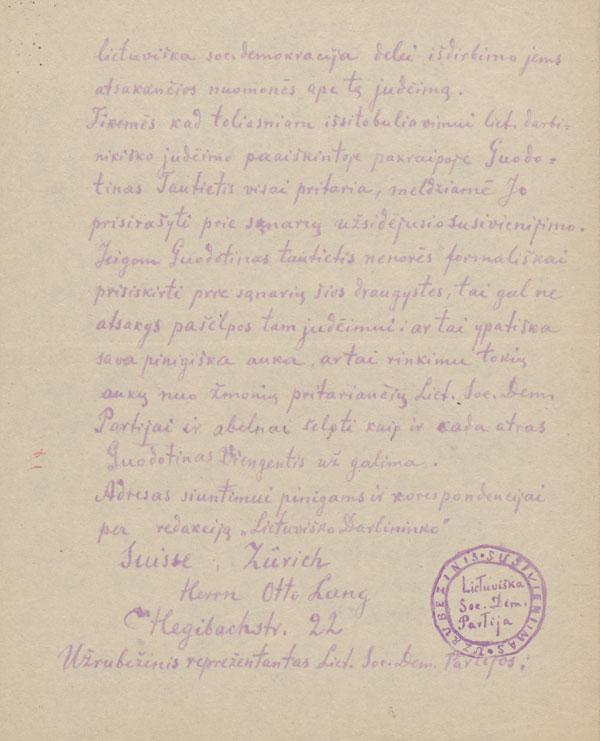 lietuviška soc. demokracija delei išdirbimo jems
atsakančios nuomonės ape tą judėimą.
Tikemės kad toliasniam išsitobuliavimui liet. darbi-
nikiško judėimo paaiškintoje pakraipoje Guodo-
tinas Tautietis visai pritaria, meldžiamė Jo
prisirašyti prie sąnarių užsidėjusio susivienijimo.
Jeigom Guodotinas tautietis nenorės formališkai
prisiskirti prie sąnarių šios draugystes, tai gal ne
atsakys pašelpos tam judėimui: ar tai ypatiška
sava pinigiška auka, ar tai rinkimu tokių
aukų nuo žmonių pritariančių Liet. Soc. Dem.
Partijai ir abelnai šelpti kaip ir kada atras
Guodotinas Viengentis už galima.
Adresas siuntimui pinigams ir korespondencijai
per redakciją „Lietuviško Darbininko"
Suisse, Zürich
Herrn Otto Lang
Hegibachstr. 22
Užrubežinis reprežentantas Liet. Soc. Dem. Partijos:
UŽRUBEŽINIS SUSIVIENIJIMAS
Lietuviška
Soc. Dem.
Partija